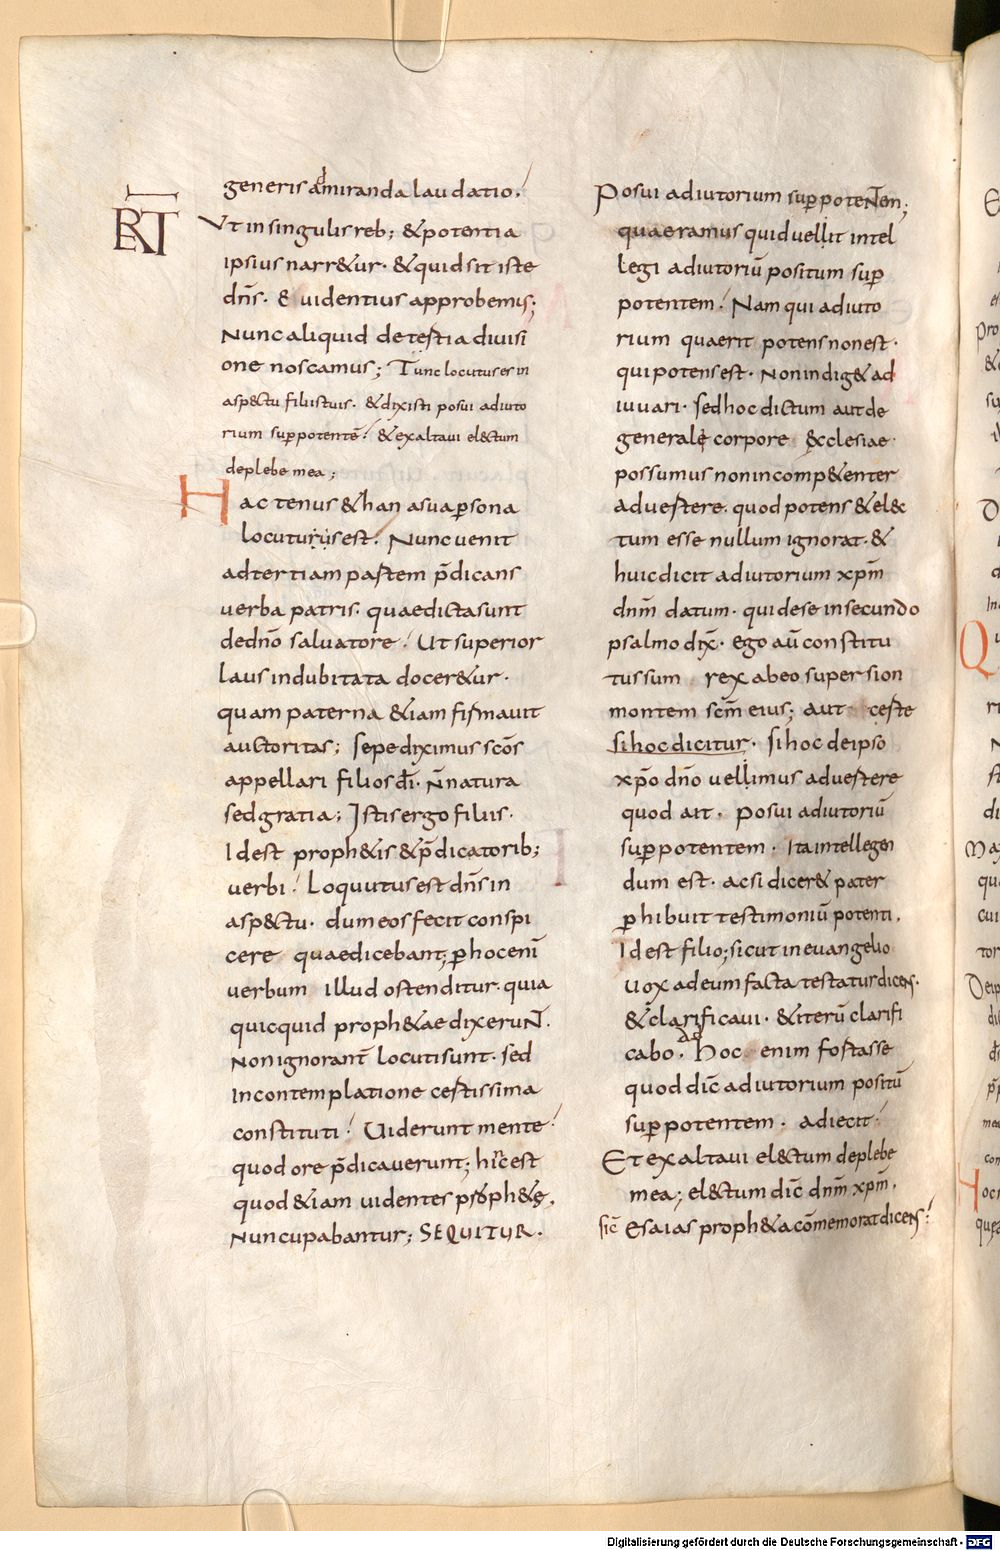 generis admiranda laudatio.
Ut in singulis reb; & potentia
ipsius narr&ur. & quid sit iste
dn̄s. & uidentius approbemus;
Nunc aliquid de testia diuisi
one noscamus; Tunc locutus es in
asp&tu filiis tuis. & dixisti posui adiuto
rium sup potentē. & exaltaui el&tum
de plebe mea;
Hactenus &han a sua psona
locuturus est. Nunc uenit
ad tertiam partem p̄dicans
uerba patris. quae dicta sunt
de dn̄o saluatore. Ut superior
laus indubitata docer&ur.
quam paterna &iam firmauit
auctoritas; sepe diximus sc̄os
appellari filios dī. n̄ natura
sed gratia; Istis ergo filiis.
Id est proph&is & p̄dicatorib;
uerbi. Loquutus est dn̄s in
asp&tu. dum eos fecit conspi
cere quae dicebant; p hoc enī
uerbum illud ostenditur. quia
quicquid proph&ae dixerunt.
Non ignorant̄ locuti sunt. sed
In contemplatione certissima
constituti. Uiderunt mente.
quod ore p̄dicauerunt; hinc est
quod &iam uidentes proph&ę.
Nuncupabantur; SEQUITUR.
Posui adiutorium sup potentem;
quaeramus quid uellit intel
legi adiutoriū positum sup
potentem. Nam qui adiuto
rium quaerit potens non est.
qui potens est. Non indig& ad
iuuari. sed hoc dictum aut de
generale corpore &cclesiae.
possumus non incomp&enter
aduertere. quod potens & el&
tum esse nullum ignorat. &
huic dicit adiutorium xp̄m
dn̄m datum. qui de se in secundo
psalmo dix̄. ego aū constitu
tus sum rex ab eo super sion
montem sc̄m eius; aut certe
si hoc dicitur. si hoc de ipso
xp̄o dn̄o uellimus aduertere
quod ait. posui adiutoriū
sup potentem. Ita intellegen
dum est. ac si dicer& pater
phibuit testimoniū potenti.
Id est filio; sicut in euangelio
uox ad eum facta testatur dicens.
& clarificaui. & iterū clarifi
cabo. Ad hoc enim fortasse
quod dic̄ adiutorium positū
sup potentem. adiecit.
Et exaltaui el&tum de plebe
mea; el&tum dic̄ dn̄m xp̄m.
sic̄ Esaias proph&a cōmemorat dicens:
Digitalisierung gefördert durch die Deutsche Forschungsgemeinschaft - DFG